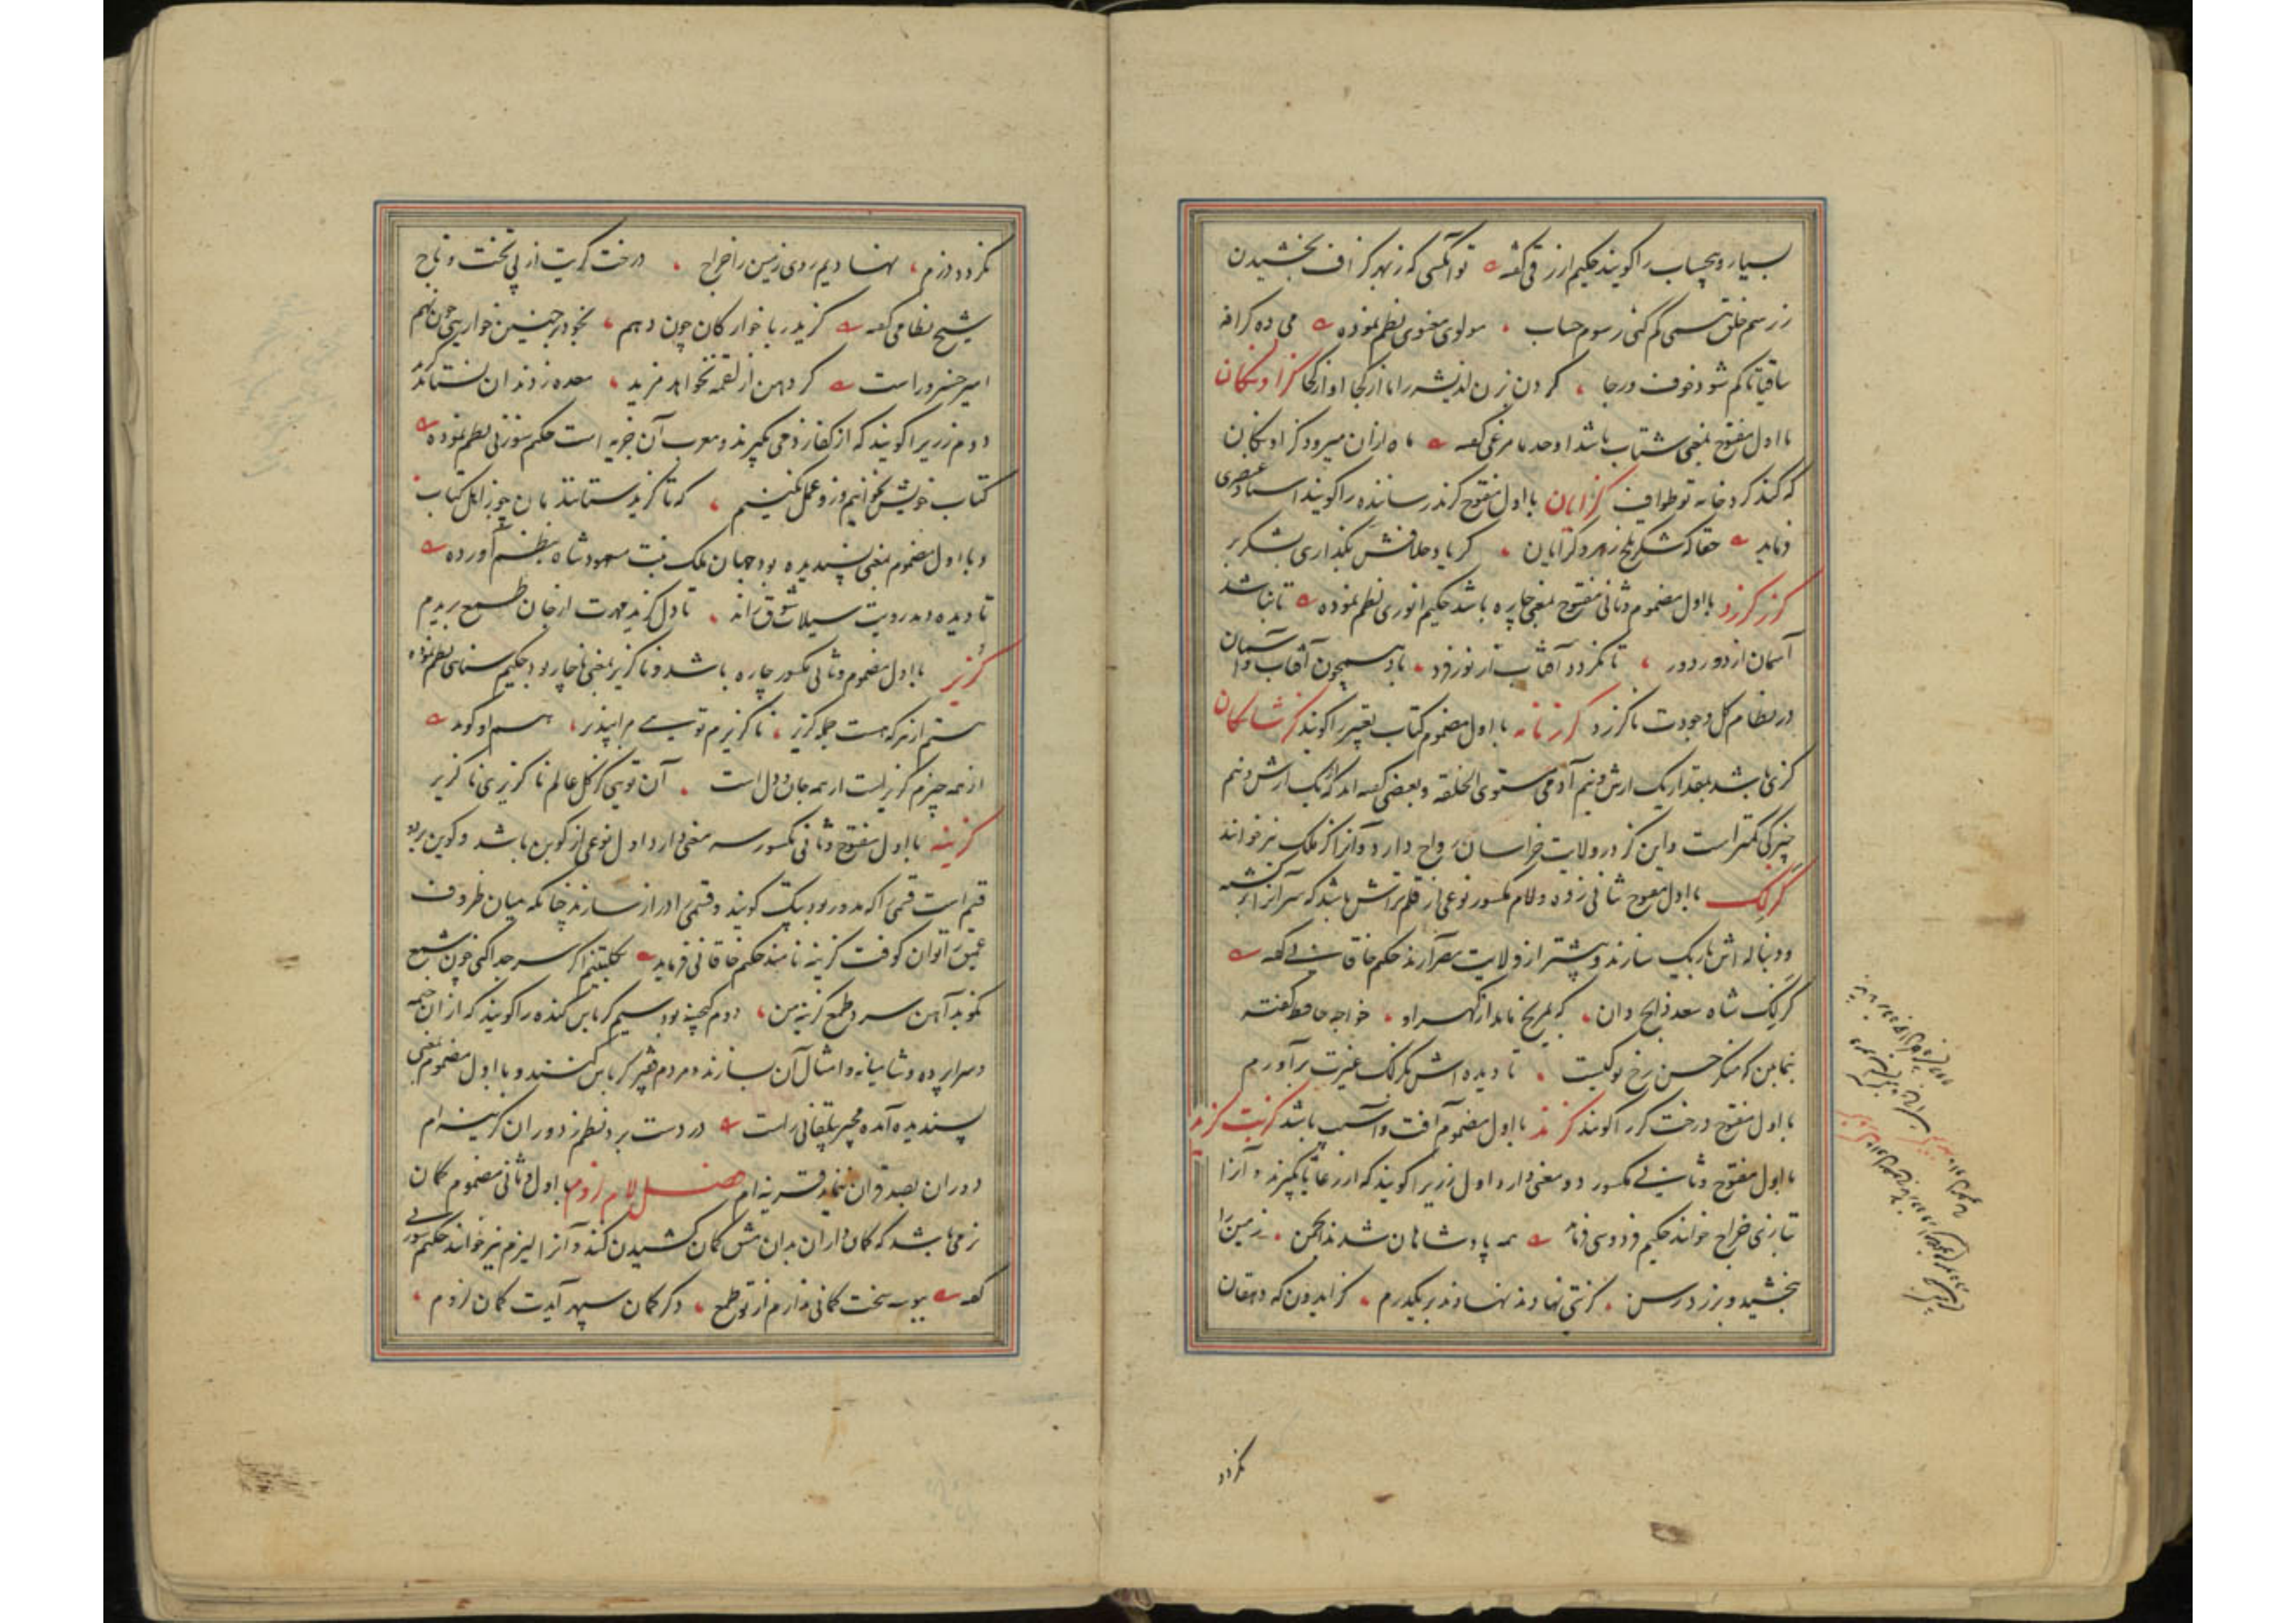 بسیار و بیحساب را کویند حکیم ازرقی کفته تو آنکسی که ز بهر کزاف بخشیدن
ز رسم خلق همی کم کنی رسوم حساب مولوی معنوی نظم نموده می ده کزافه
ساقیا تا کم شود خوف و رجا کردن بزن اندیشه را ما از کجا او از کجا کزاوکان
با اول مفتوح بمعنی شتاب باشد اوحد مراغی کفته ماه ازان میرود کزاوکان
که کند کرد خانه تو طواف کزایان با اول مفتوح کزند رساننده را کویند استاد عنصری
فرماید حقا که شکر تلخ زهرد کزایان کر باد خلافش بگذاری بشکر بر
کزر کزرد با اول مضموم و ثانی مفتوح بمعنی چاره باشد حکیم انوری نظم نموده تا نباشد
آسمان از دور دور تا نکردد آفتاب از نور فرد باد همچون آفتاب و آسمان
در نظام کل وجودت ناکزرد کزنامه با اول مضموم کتاب تعبیر را کویند کزشاکان
کزی باشد بمقدار یک ارش و نیم آدمی مستوی الخلقه و بعضی کفته اند که یک ارش و نیم
چیزکی کمتر است و این کز در ولایت خراسان رواج دارد و آنرا کز ملک نیز خوانند
کزلک با اول مفتوح ثانی زده و لام مکسور نوعی از قلم تراش باشد که سر آنرا برکشته
و دنباله اش باریک سازند و بیشتر از ولایت مصر آرند حکیم خاقانی کفته
کزلک شاه سعد ذابح دان که بمریخ ماند از کهر او خواجه حافظ کفته
بنما بمن که منکر حسن رخ تو کیست تا دیده اش بکزلک غیرت برآورم
با اول مفتوح درخت کز را کویند کزند با اول مضموم آفت و آسیب باشد کزیت کزید
با اول مفتوح و ثانی مکسور دو معنی دارد اول زریرا کویند که از رعایا بکیرند و آنرا
بتازی خراج خوانند حکیم فردوسی فرماید همه پادشاهان شدند انجمن زمین را
ببخشید و برزد رسن کزیتی نهادند بر یکدرم کز ایدون که دهقان
نکردد
نکردد دژم نهادیم بر روی زمین را خراج درخت کزیت از پی تخت و تاج
شیخ نظامی کفته کزید ربا خوارکان چون دهم بخود بر چنین خواریی چون نهم
امیر خسرو راست کر دهن از لقمه نخواهد مزید معده ز دندان نستاند کزید
دوم زریرا کویند که از کفار ذمی بکیرند و معرب آن جزیه است حکیم سوزنی نظم نموده
کتاب خویش بخوانیم و زو عمل نکنیم که تا کزید ستانند مان چو ز اهل کتاب
و با اول مضموم بمعنی پسندیده بود جهان ملک بنت مسعود شاه بنظم آورده
تا دیده دید رویت سیلاب شوق راند تا دل کزید مهرت از جان طمع بریدم
کزیر با اول مضموم و ثانی مکسور چاره باشد و ناکزیر بمعنی ناچار بود حکیم سنائی نظم نموده
ستم از هر که هست جمله کزیر ناکزیرم توییی مرا بپذیر هم او کوید
از همه چیزم کزیر است از همه جان و دل است آن تویی کز کل عالم ناکزیری ناکزیر
کزینه با اول مفتوح و ثانی مکسور سه معنی دارد اول نوعی از کوبن باشد و کوبن بر دو
قسم است قسمی را که مدور بود پتک کویند و قسمی را دراز سازند چنانکه میان ظروف
عمیق را توان کوفت کزینه نامند حکیم خاقانی فرماید بکلبتینم اکر سر جدا کنی چون شمع
نکوبد آهن سرد طمع کزینه من دوم کنجینه بود سیم کرباس کنده را کویند که از ان خیمه
و سراپرده و شامیانه و امثال آن سازند و مردم فقیر کرباس کنند و با اول مضموم بمعنی
پسندیده آمده مجیر بیلقانی راست در دست برد نظم ز دوران کزینه ام
دوران بصد قران ننماید قرینه ام فصل لام لزوم با اول و ثانی مضموم کمان
نرمی باشد که کمان داران بدان مشق کمان کشیدن کنند و آنرا لیزم نیز خوانند حکیم سوزنی
کفته بیوبه سخت کمانی ندارم از تو طمع وکر کمان سپهر آیدت کمان لزوم